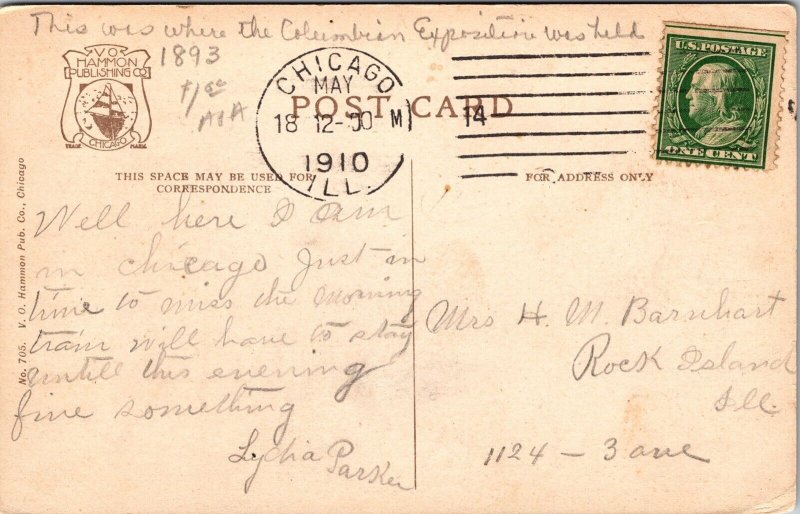 This was where the Columbian Exposition was held
1893
V O
HAMMON
PUBLISHING CO
CHICAGO
TRADE MARK
CHICAGO
MAY
18 12-00 M
1910
ILL.
14
U.S. POSTAGE
ONE CENT
POST CARD
THIS SPACE MAY BE USED FOR
CORRESPONDENCE
FOR ADDRESS ONLY
No. 705. V. O. Hammon Pub. Co., Chicago
Well here I am
in chicago Just in
time to miss the morning
train will have to stay
untill this evening
fine something
Lydia Parker
Mrs H. M. Barnhart
Rock Island
Ill.
1124 - 3 ave